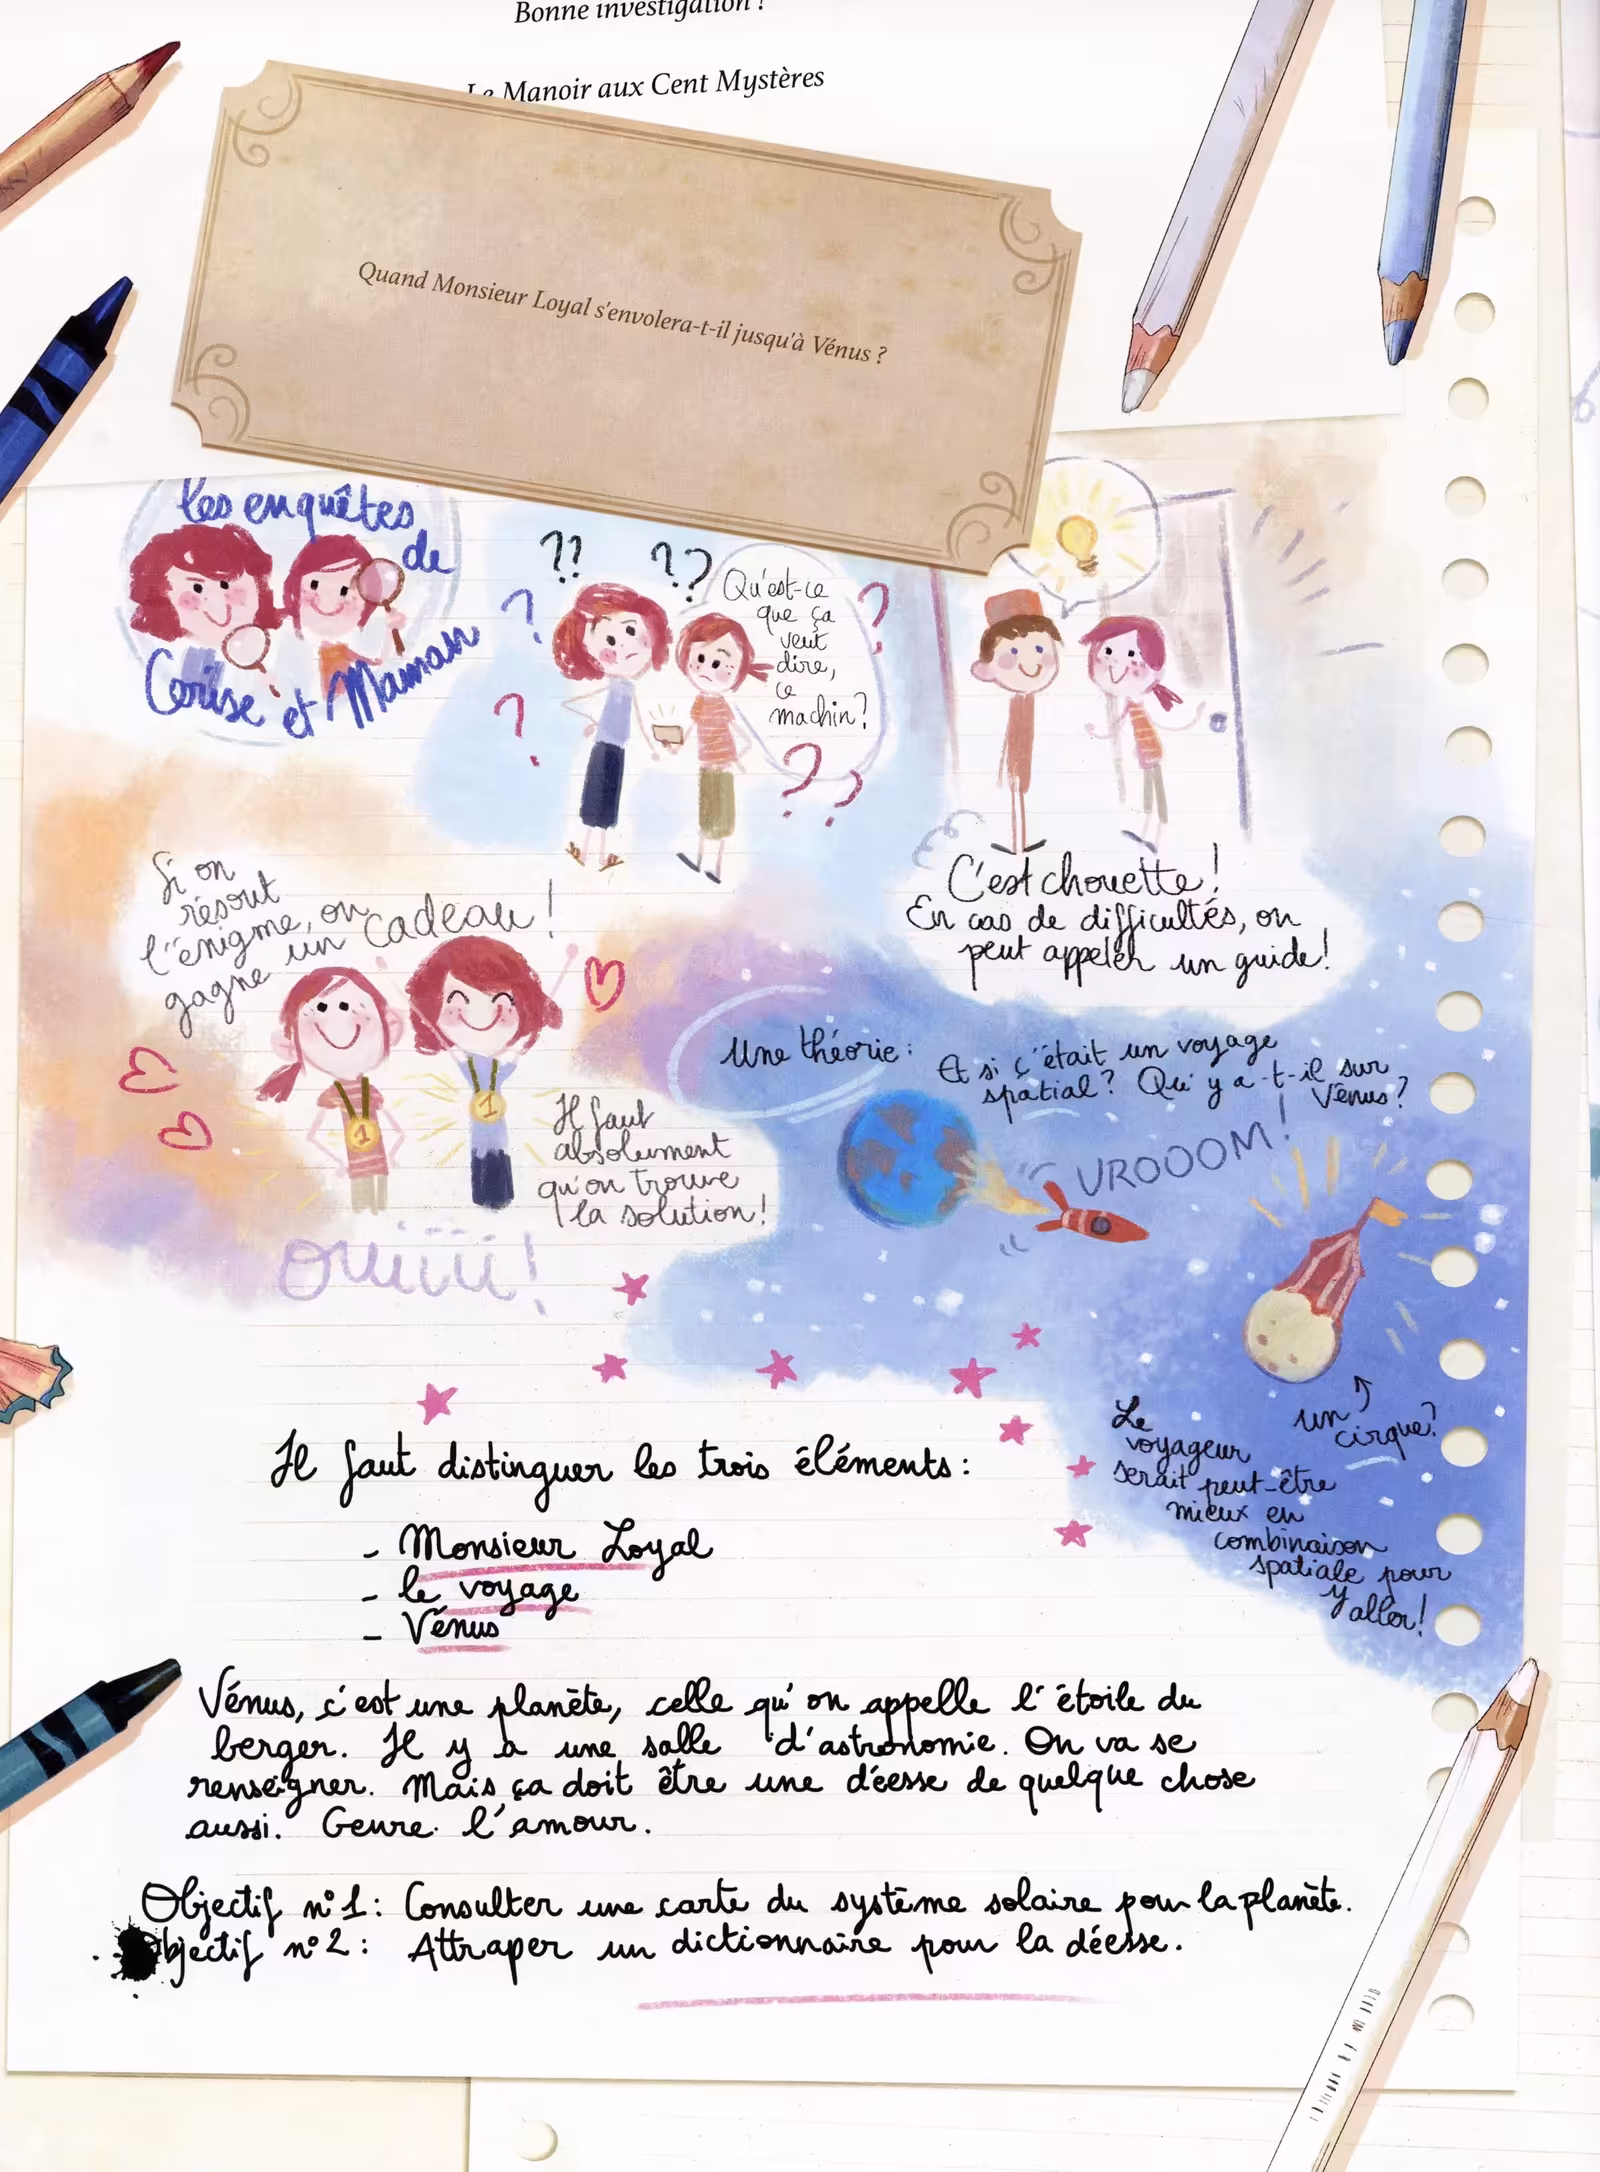 Bonne investigation !
Le Manoir aux Cent Mystères
Quand Monsieur Loyal s'envolera-t-il jusqu'à Vénus ?
les enquêtes
de
Cerise et Maman
??
??
?
?
?
?
?
Qu'est-ce
que ça
veut
dire,
ce
machin?
C'est chouette!
En cas de difficultés, on
peut appeler un guide!
Si on
résout
l'énigme, on
gagne un cadeau!
1
1
Il faut
absolument
qu'on trouve
la solution!
ouiiii!
Une théorie:
Et si c'était un voyage
spatial? Qu'y a-t-il sur
Vénus?
VROOOM!
un
cirque?
Le
voyageur
serait peut-être
mieux en
combinaison
spatiale pour
y aller!
Il faut distinguer les trois éléments:
- Monsieur Loyal
- le voyage
- Vénus
Vénus, c'est une planète, celle qu'on appelle l'étoile du
berger. Il y a une salle d'astronomie. On va se
renseigner. Mais ça doit être une déesse de quelque chose
aussi. Genre l'amour.
Objectif n°1: Consulter une carte du système solaire pour la planète.
Objectif n°2: Attraper un dictionnaire pour la déesse.